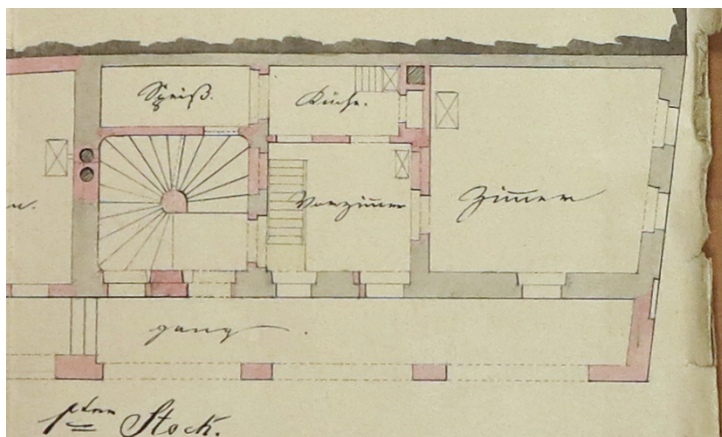 Speiß.
Küche.
Vorzimmer
Zimmer
gang.
1ten Stock.